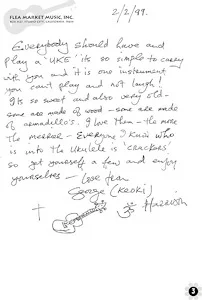 FLEA MARKET MUSIC, INC.
2/2/99.
Everybody should have and
play a 'UKE' its so simple to carry
with you and it is one instrument
you cant play and not laugh!
Its so sweet and also very old-
some are made of wood - some are made
of armadillo's. I love them - the more
the merrier - Everyone I know who
is into the Ukulele is 'crackers'
so get yourself a few and enjoy
yourselves -
George (Keoki)
ॐ
3